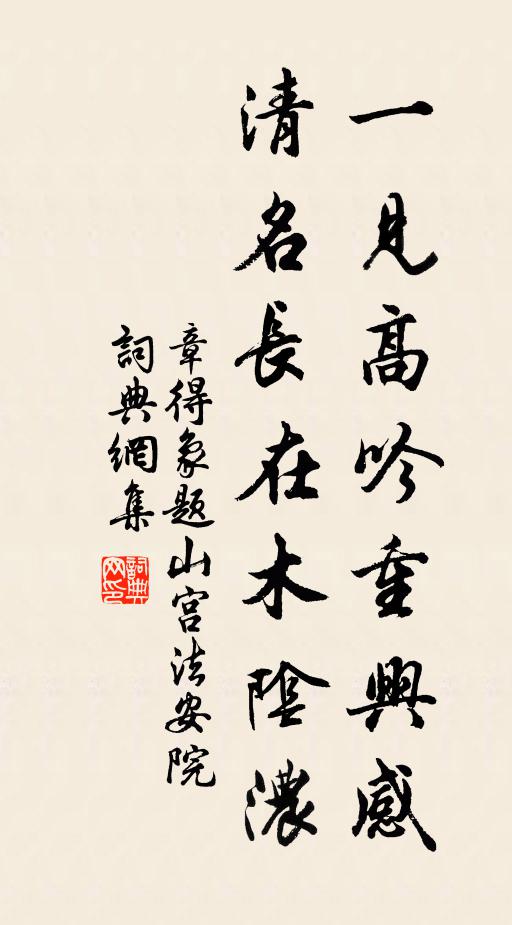 一見高吟重興感
清名長在木陰濃
章得象題山宮法安院
詞典網集
詞典網印